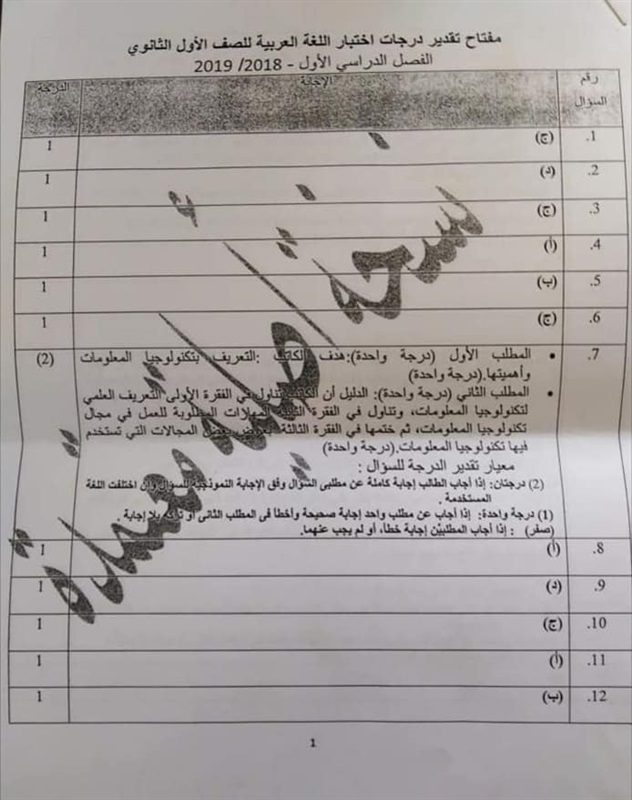 مفتاح تقدير درجات اختبار اللغة العربية للصف الأول الثانوي
الفصل الدراسي الأول - 2018/ 2019
رقم السؤال الإجابة الدرجة
1. (ج) 1
2. (د) 1
3. (ج) 1
4. (أ) 1
5. (ب) 1
6. (ج) 1
7. • المطلب الأول (درجة واحدة):هدف الكاتب :التعريف بتكنولوجيا المعلومات (2)
وأهميتها.(درجة واحدة)
• المطلب الثاني (درجة واحدة): الدليل أن الكاتب تناول في الفقرة الأولى التعريف العلمي
لتكنولوجيا المعلومات، وتناول في الفقرة الثانية المهارات المطلوبة للعمل في مجال
تكنولوجيا المعلومات، ثم ختمها في الفقرة الثالثة بعض المجالات التي تستخدم
فيها تكنولوجيا المعلومات.(درجة واحدة)
معيار تقدير الدرجة للسؤال :
(2) درجتان: إذا أجاب الطالب إجابة كاملة عن مطلبي السؤال وفق الإجابة النموذجية للسؤال وإن اختلفت اللغة
المستخدمة .
(1) درجة واحدة: إذا أجاب عن مطلب واحد إجابة صحيحة وأخطأ في المطلب الثاني أو تركه بلا إجابة
(صفر) : إذا أجاب المطلبيْن إجابة خطأ، أو لم يجب عنهما.
8. (أ) 1
9. (د) 1
10. (ج) 1
11. (أ) 1
12. (ب) 1
نسخة أصلية معتمدة
1